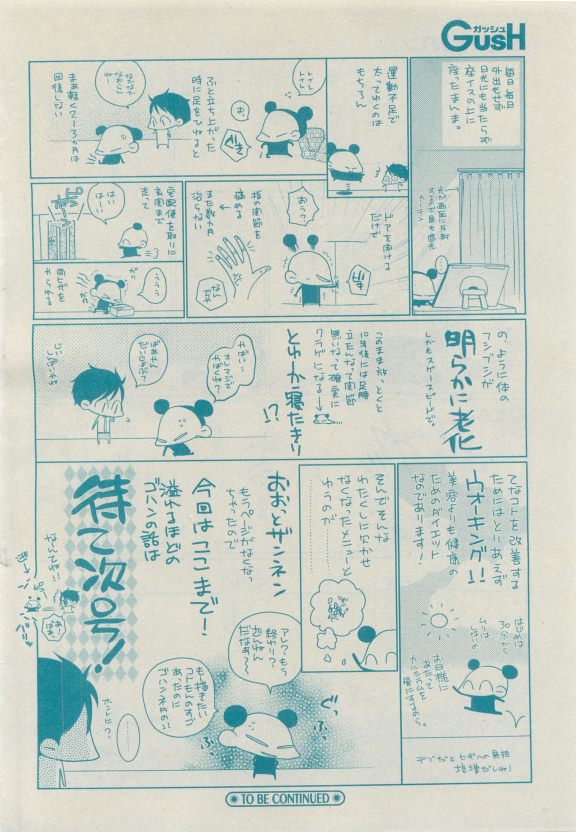 ガッシュ
GUSH
毎日毎日
外出もせず
日光にも当たらず
座イスの上に
座ったまんま。
光が画面に反射
カーテン
運動不足で
太ってゆくのは
もちろん
ふと立ち上がった
時に足をひねると
まあ軽く2〜3ヵ月は
回復しない
ドアを開ける
だけで
おうっ
指の関節を
痛める
また数ヵ月
治らない
宅配便を取りに
玄関まで
走って
ピンポーン
はい
はーい
両ヒザを
やられる
うううっ
の、ように体の
フシブシが
明らかに老化
しかもスゲースピードで。
このまま放っとくと
10年後には足腰
立たんなって関節
無いなって確実に
クラゲになる
とゆーか寝たきり
!?
やばい…
オレマジで
やばくね?
てなコトを改善する
ためにはとりあえず
ウォーキング!!
美容よりも健康の
ためのダイエット
なのであります!
はじめは
30分から
お日様に
あたって
カルシウムも
骨にするのら。
デブだとヒザへの負担
倍増だしね!
そんでそんな
わたくしに欠かせ
なくなったメニューと
ゆうのが
おおっとザンネン
もうページがなくなっ
ちゃったので
今回はここまで!
溢れるほどの
ゴハンの話は
待て次号!
なんてね!!
アレ?もう
終わり?
ざんねん
だなぁ〜
も描きたい
コトもんのすご
あったのに
ゴハンネタの!!
ぐっ
ふっ
ふっ
ホントに?
TO BE CONTINUED